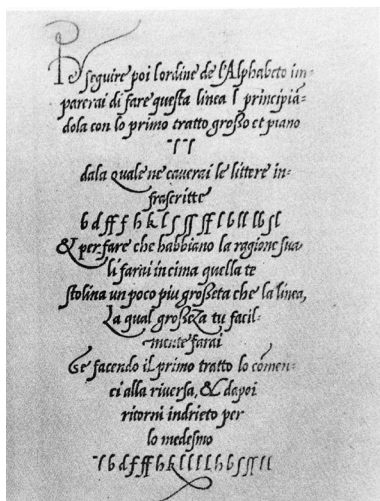 Pe seguire poi lordine de l'Alphabeto im=
parerai di fare questa linea l principiā=
dola con lo primo tratto grosso et piano
dala quale ne caverai le littere in=
frascritte
& per fare che habbiano la ragione sua
li farai in cima quella te
stolina un poco piu grosseta che la linea,
La qual grosseza tu facil=
mente farai
Se facendo il primo tratto lo comen=
ci alla riversa, & dapoi
ritorni indrieto per
lo medesmo